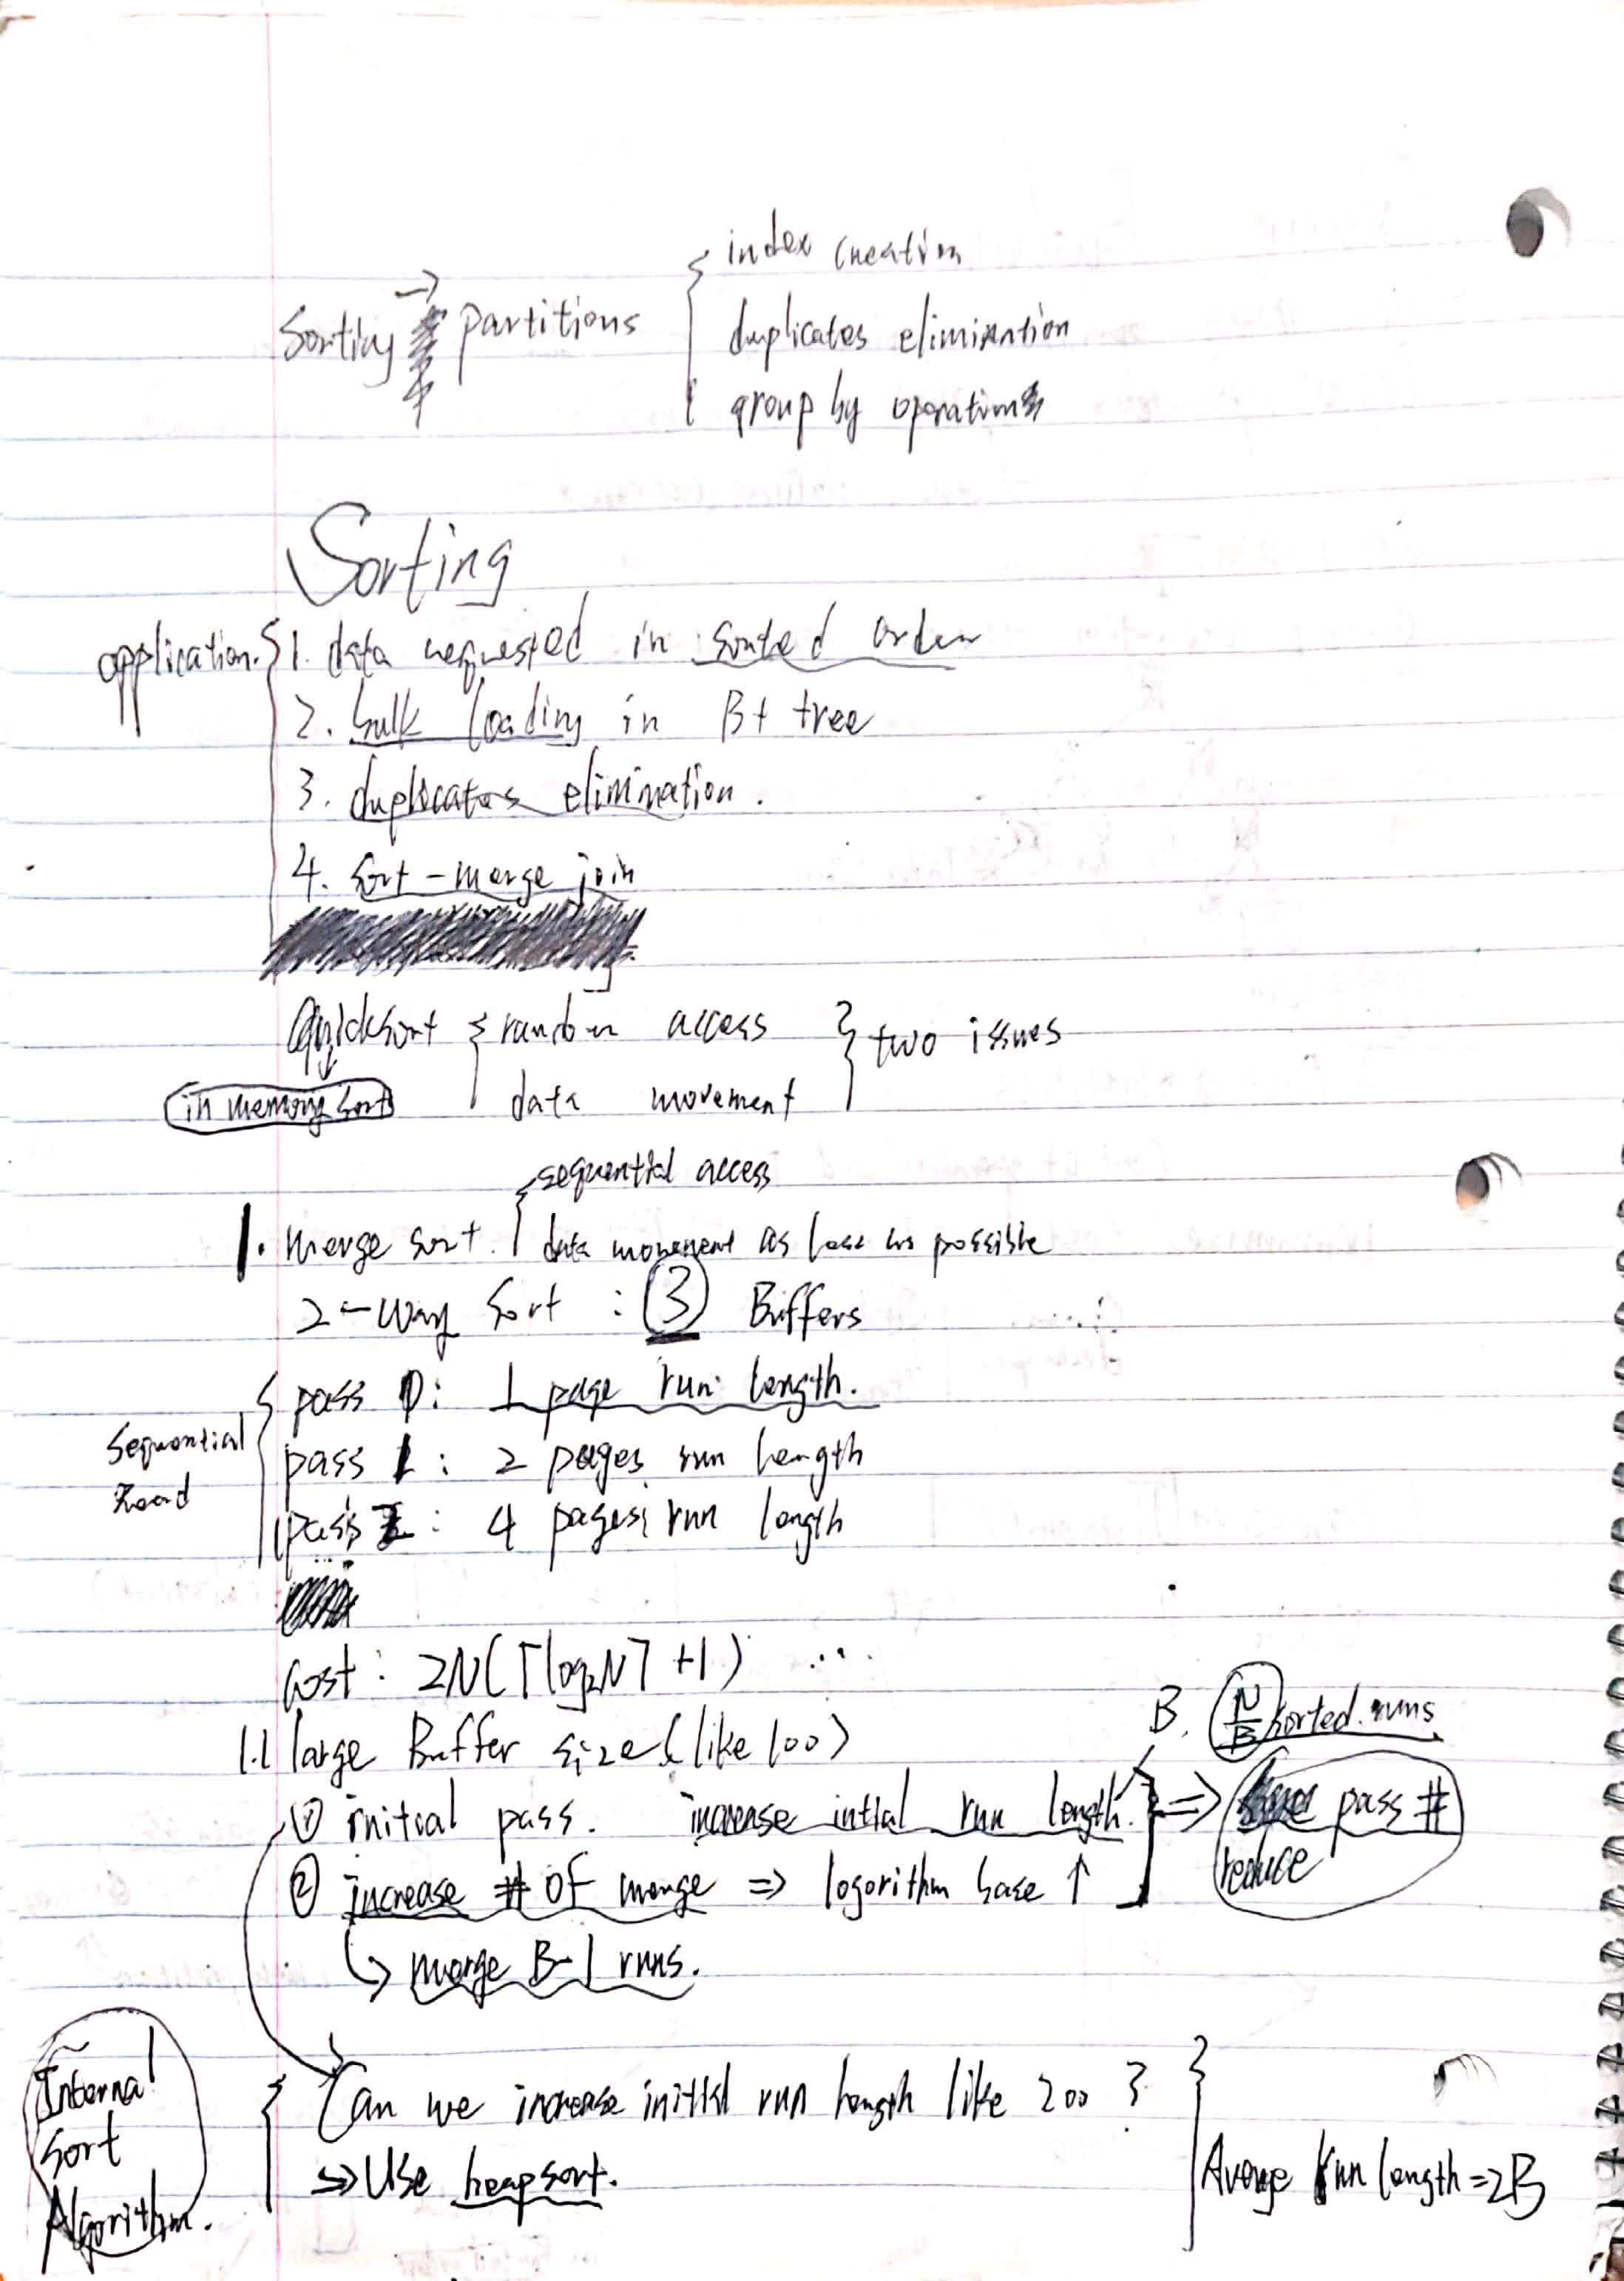 Sorting → partitions { index creation
duplicates elimination
group by operations
Sorting
application. { 1. data requested in sorted order
2. bulk loading in B+ tree
3. duplicates elimination.
4. Sort-merge join
Quicksort { random access } two issues
in memory sort
data movement
1. merge sort. { sequential access
data movement as less as possible
2-way Sort : ③ Buffers
Sequential Read {
pass 0: 1 page run length.
pass 1: 2 pages run length
pass 2: 4 pages run length
...
Cost: 2N(⌈log₂N⌉ +1) ...
1.1 large Buffer size (like 100)
B. N/B sorted runs
① initial pass. increase intial run length. } ⇒ pass # reduce
② increase # of merge ⇒ logorithm base ↑
↳ merge B-1 runs.
Internal Sort Algorithm.
{ Can we increase initial run length like 200 ?
⇒ Use heapsort.
} Averge run length = 2B